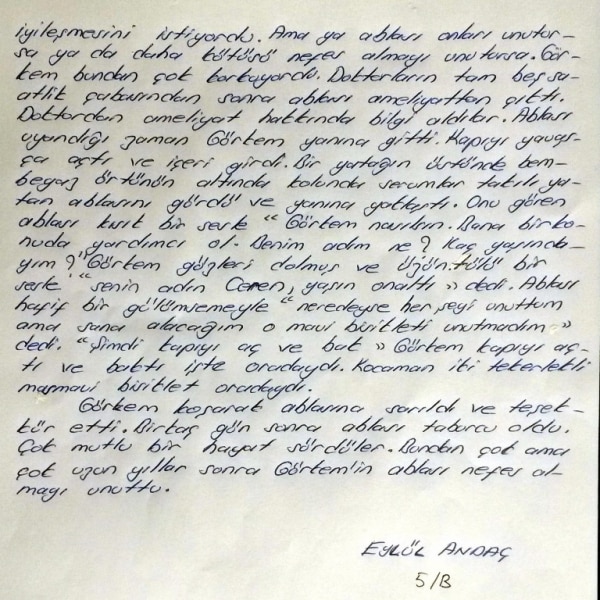 iyileşmesini istiyordu. Ama ya ablası onları unutur-
sa ya da daha kötüsü nefes almayı unutursa. Gör-
kem bundan çok korkuyordu. Doktorların tam beş sa-
atlik çabasından sonra ablası ameliyattan çıktı.
Doktordan ameliyat hakkında bilgi aldılar. Ablası
uyandığı zaman Görkem yanına gitti. Kapıyı yavaş-
ça açtı ve içeri girdi. Bir yatağın üstünde bem-
beyaz örtünün altında kolunda serumlar takılı ya-
tan ablasını gördü ve yanına yaklaştı. Onu gören
ablası kısık bir sesle "Görkem nasılsın. Bana bir ko-
nuda yardımcı ol. Benim adım ne? Kaç yaşında-
yım?" Görkem gözleri dolmuş ve üzüntülü bir
sesle "senin adın Ceren, yaşın onaltı" dedi. Ablası
hafif bir gülümsemeyle "neredeyse her şeyi unuttum
ama sana alacağım o mavi bisikleti unutmadım"
dedi. "Şimdi kapıyı aç ve bak" Görkem kapıyı aç-
tı ve baktı işte oradaydı. Kocaman iki tekerlekli
masmavi bisiklet oradaydı.
Görkem koşarak ablasına sarıldı ve teşek-
kür etti. Birkaç gün sonra ablası taburcu oldu.
Çok mutlu bir hayat sürdüler. Bundan çok ama
çok uzun yıllar sonra Görkem'in ablası nefes al-
mayı unuttu.
EYLÜL ANDAÇ
5/B